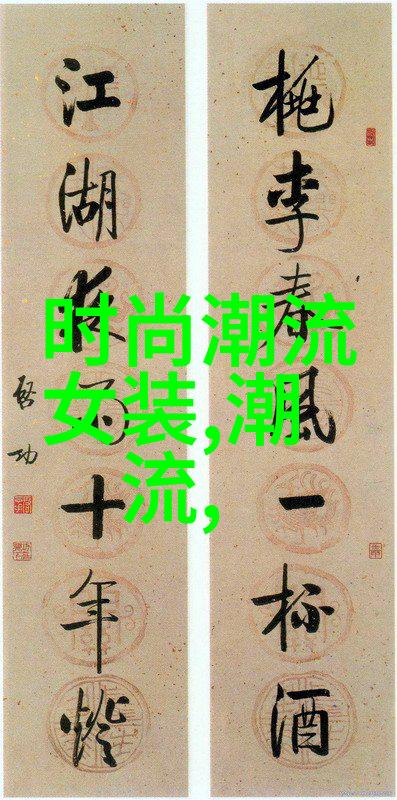 桃李春風一杯酒
江湖夜雨十年燈
啓功
时尚潮流
女装,潮
流,